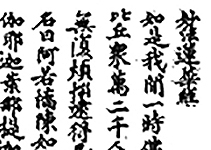 妙法蓮華經
如是我聞一時佛
比丘衆萬二千人
無復煩惱逮得
名曰阿若憍陳如
伽耶迦葉那提迦